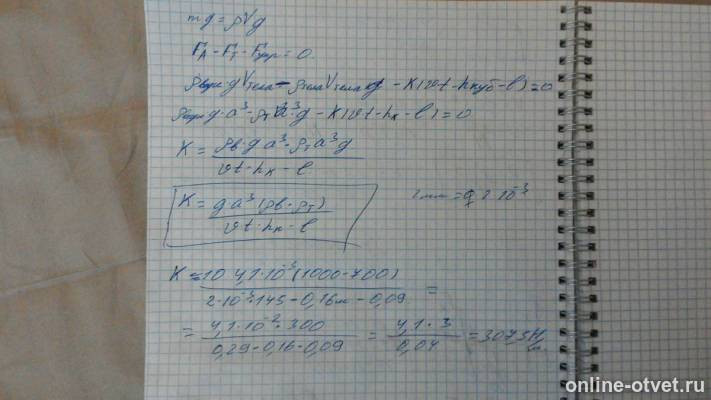 mg = ρVg
F_A - F_T - F_упр = 0.
ρ_воды·g V_тела - ρ_тела V_тела g - K(υt - h_куб - l) = 0
ρ_воды g·a³ - ρ_T a³·g - K(υt - h_к - l) = 0
K = (ρ_в·g a³ - ρ_T a³g) / (υt - h_к - l)
K = g a³(ρ_в - ρ_T) / (υt - h_к - l)
K = 10·4,1·10⁻³(1000-700) / (2·10⁻³·145 - 0,16м - 0,09) =
= 4,1·10⁻²·300 / (0,29 - 0,16 - 0,09) = 4,1·3 / 0,04 = 307,5 Н/м
online-otvet.ru